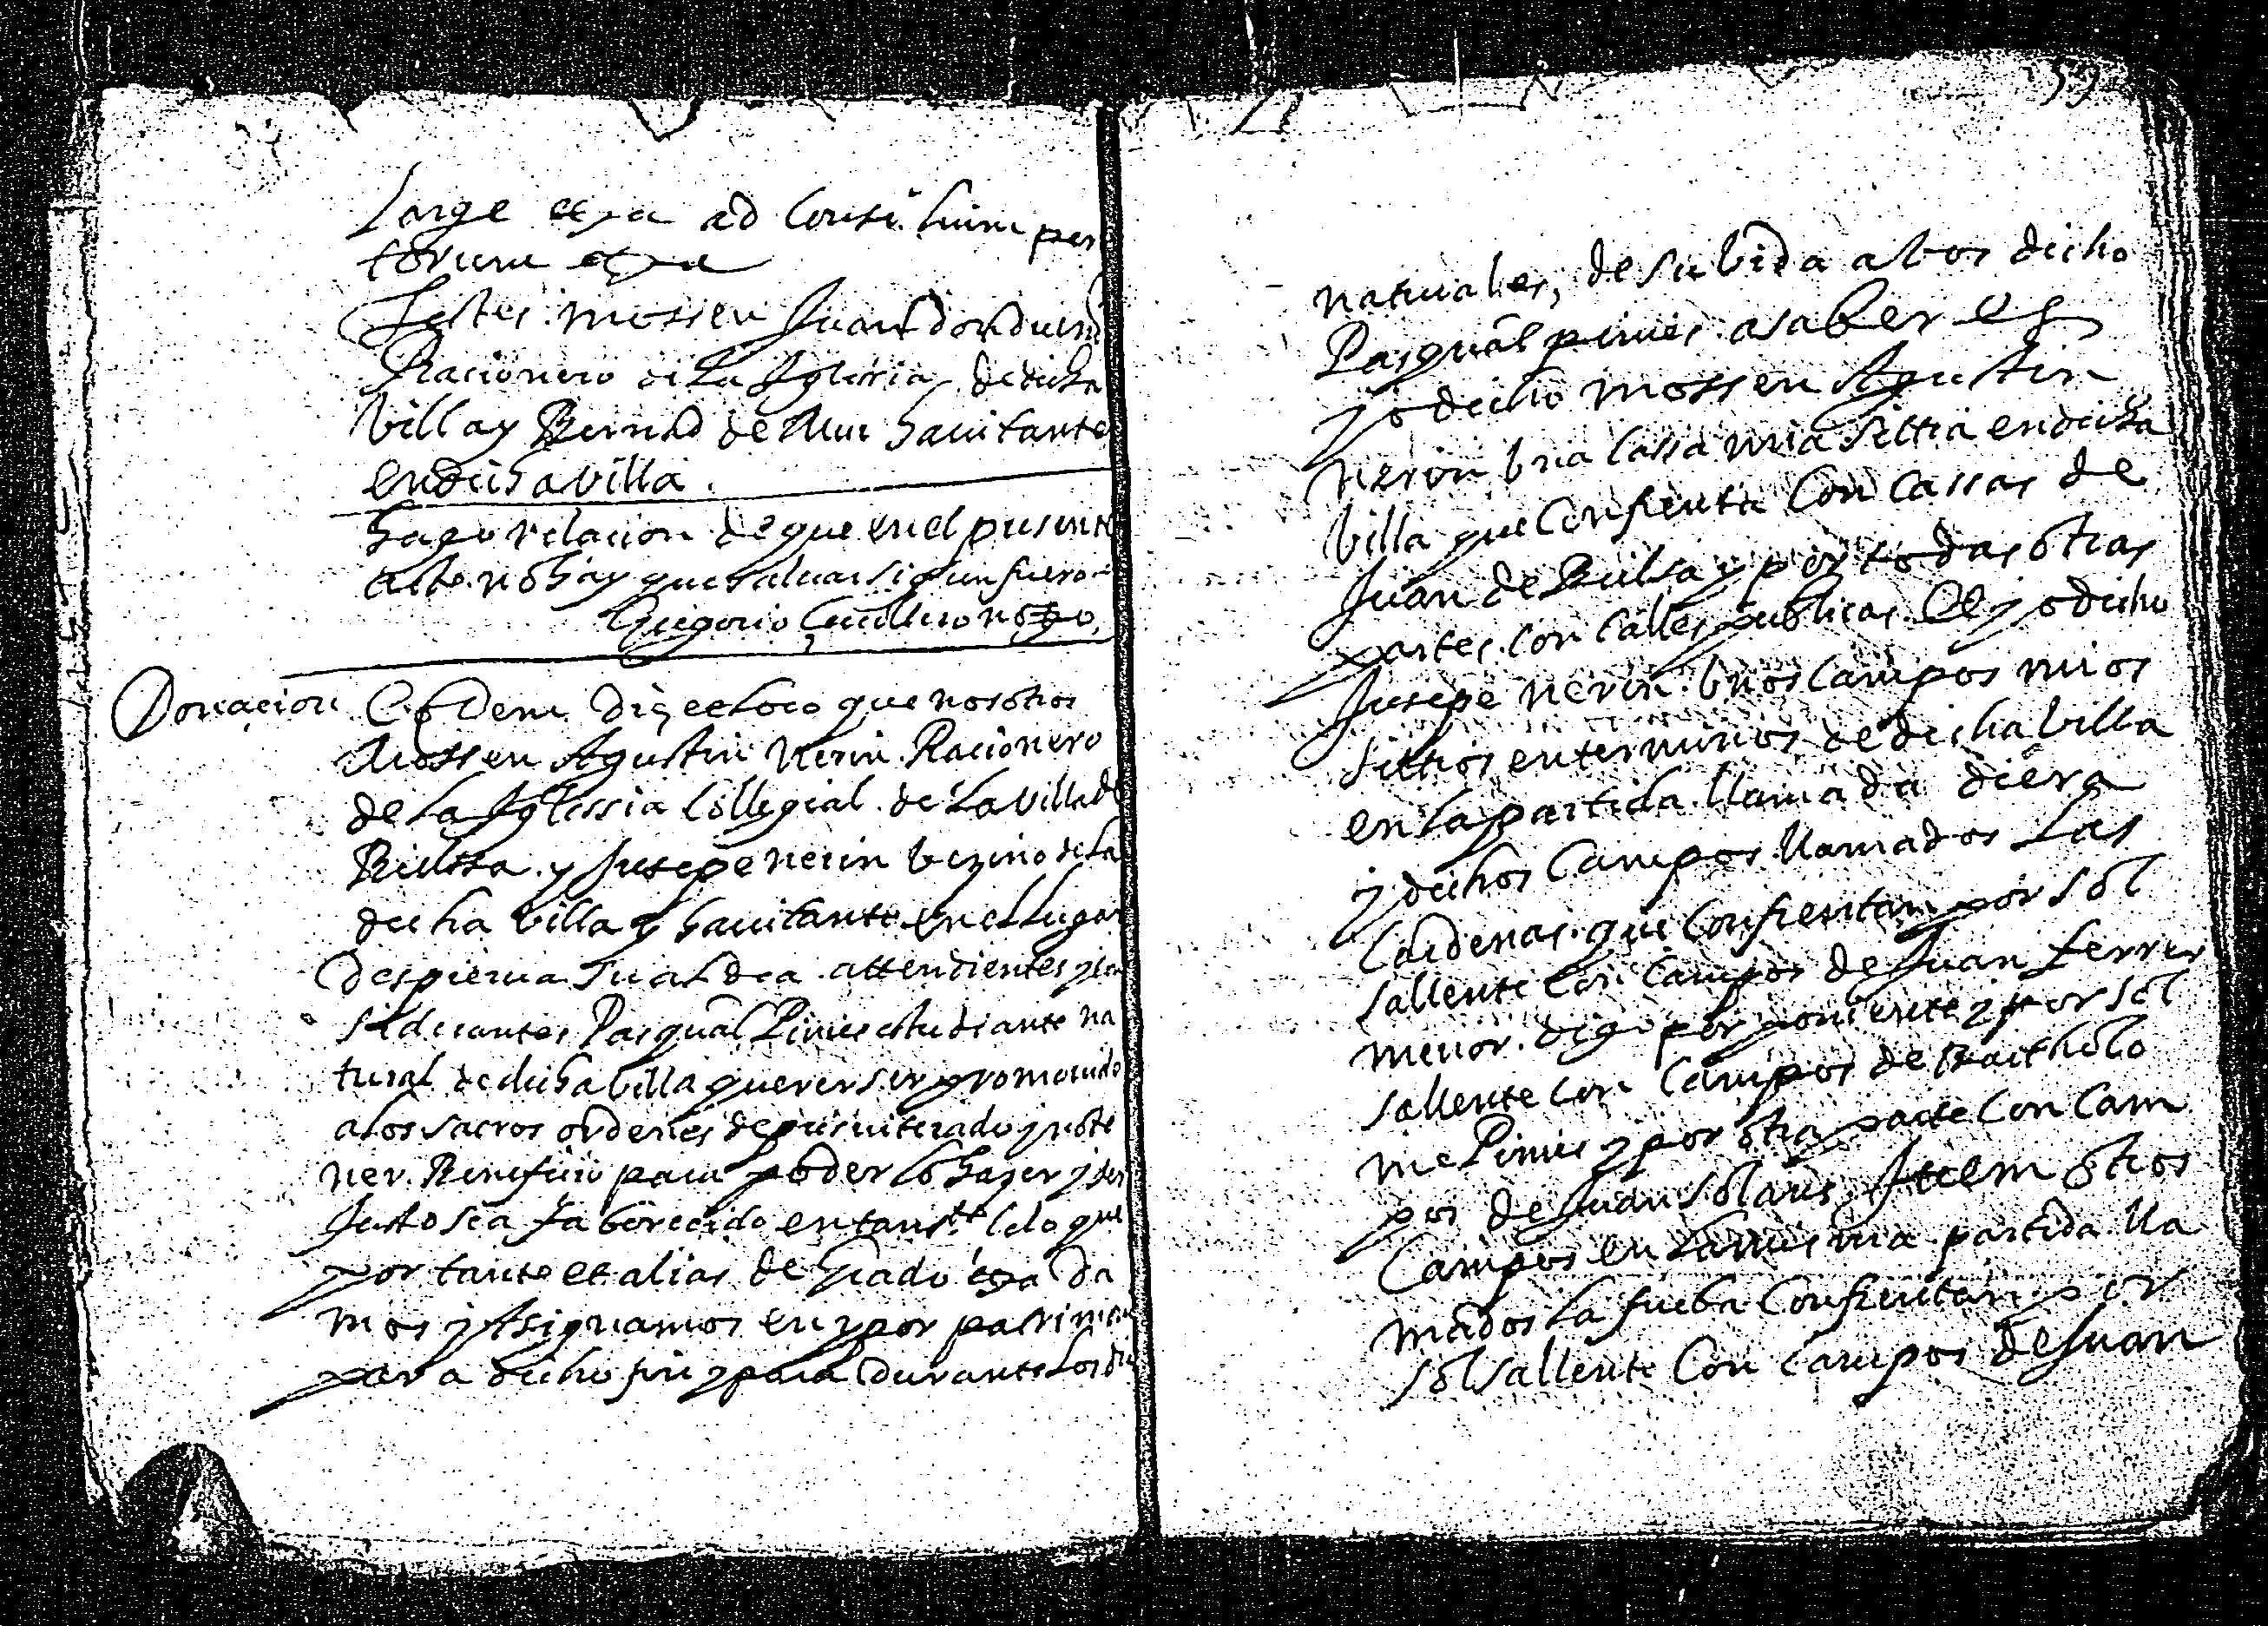 Large etza ad Consilium peri
torum etza
Testes mossen Juan
Racionero de la Iglesia de dicha
Villa y Bernad de Mur havitante
en dicha villa.
hago relacion de que en el presente
acto no hay que saluar sigun fuero
Gregorio Guillero notº
Donacion Eodem die et loco que nosotros
Mossen Agustin Nerin Racionero
de la Iglessia Collegial de la Villa de
Bielssa y Jusepe nerin bezino de la
dicha villa y havitante en el lugar
despierva su aldea attendientes y con
siderantes Pasqual Pinies estudiante na
tural de dicha billa querer ser promouido
a los sacros ordenes de presuiterado y no te
ner Beneficio para poder lo hazer y ser
Justo sea faborecido en tan sto celo que
por tanto et alias de grado etza Da
mos y Asignamos en y por patrimonio
para dicho fin y para durante los dias
naturales, de su bida a bos dicho
Pasqual pinies a saber es
yo dicho mossen Agustin
Nerin bna cassa mia sittia en dicha
Villa que Confrenta Con Cassas de
Juan de Bielsa y por todas otras
partes con calles publicas Et yo dicho
Jusepe nerin bnos Campos mios
sittios en terminos de dicha billa
en la partida llamada diera
y dichos Campos llamados las
Cardenas que Confrentan por sol
sallente Con Campos de Juan ferrer
menor digo por poniente y por sol
sallente con Campos de Bartholo
me Pinies y por otra parte Con Cam
pos de Juan Solans Item otros
Campos en la misma partida lla
mados la fueba Confrentan por
sol sallente Con Campos de Juan